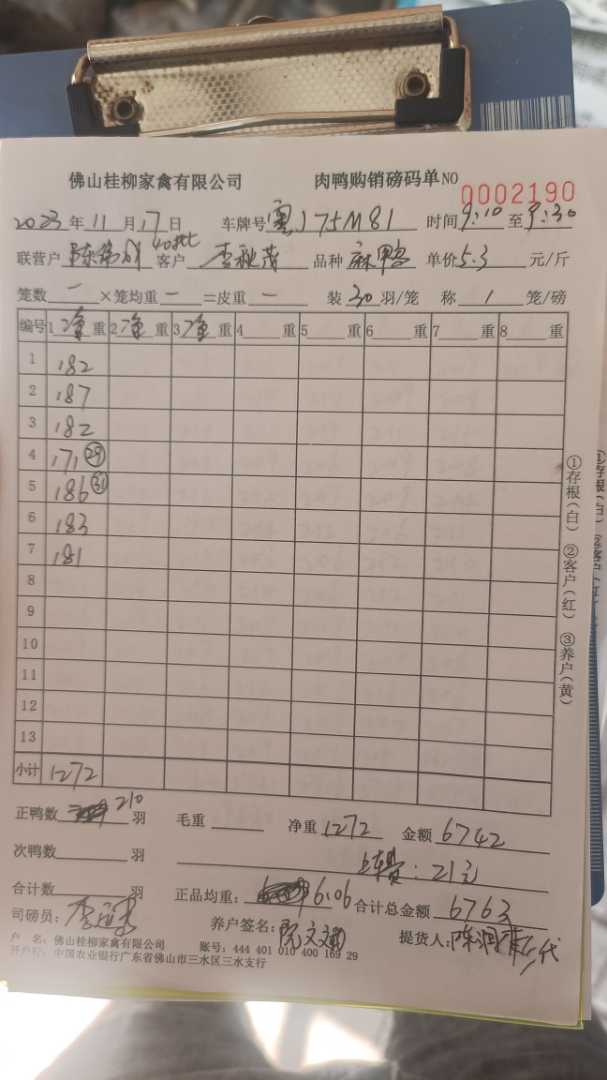 佛山桂柳家禽有限公司 肉鸭购销磅码单 NO 0002190
2023年11月17日 车牌号 粤J75M81 时间 9:10 至 9:30
联营户 40批 客户 李秋茂 品种 麻鸭 单价 5.3 元/斤
笼数 一 ×笼均重 一 =皮重 一 装 30 羽/笼 称 1 笼/磅
编号 1 净 重 2 净 重 3 净 重 4 重 5 重 6 重 7 重 8 重
1 182
2 187
3 182
4 171 29
5 186 31
6 183
7 181
8
9
10
11
12
13
小计 1272
正鸭数 210 羽 毛重 净重 1272 金额 6742
次鸭数 羽 上车费:21元
合计数 羽 正品均重: 6.06 合计总金额 6763
司磅员: 养户签名: 提货人: 代
户 名: 佛山桂柳家禽有限公司 账号: 444 401 010 400 169 29
开户行: 中国农业银行广东省佛山市三水区三水支行
①存根(白) ②客户(红) ③养户(黄)